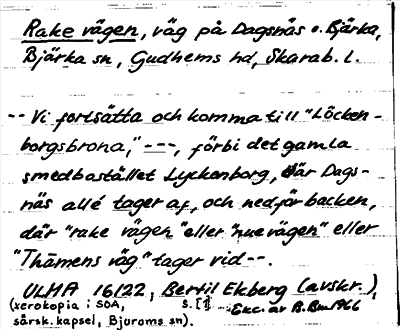 Rake vägen, väg på Dagsnäs o. Bjärka,
Bjärka sn, Gudhems hd, Skarab. l.
-- Vi fortsätta och komma till "Löcken-
borgsbrona," ---, förbi det gamla
smedbostället Lyckenborg, där Dags-
näs allé tager af, och nedför backen,
där "rake vägen" eller "nue vägen" eller
"Thamens väg" tager vid --.
ULMA 16122, Bertil Ekberg (avskr.),
(xerokopia i SOA, s. [1]
särsk. kapsel, Bjurums sn). Exc. av B. Bm 1966